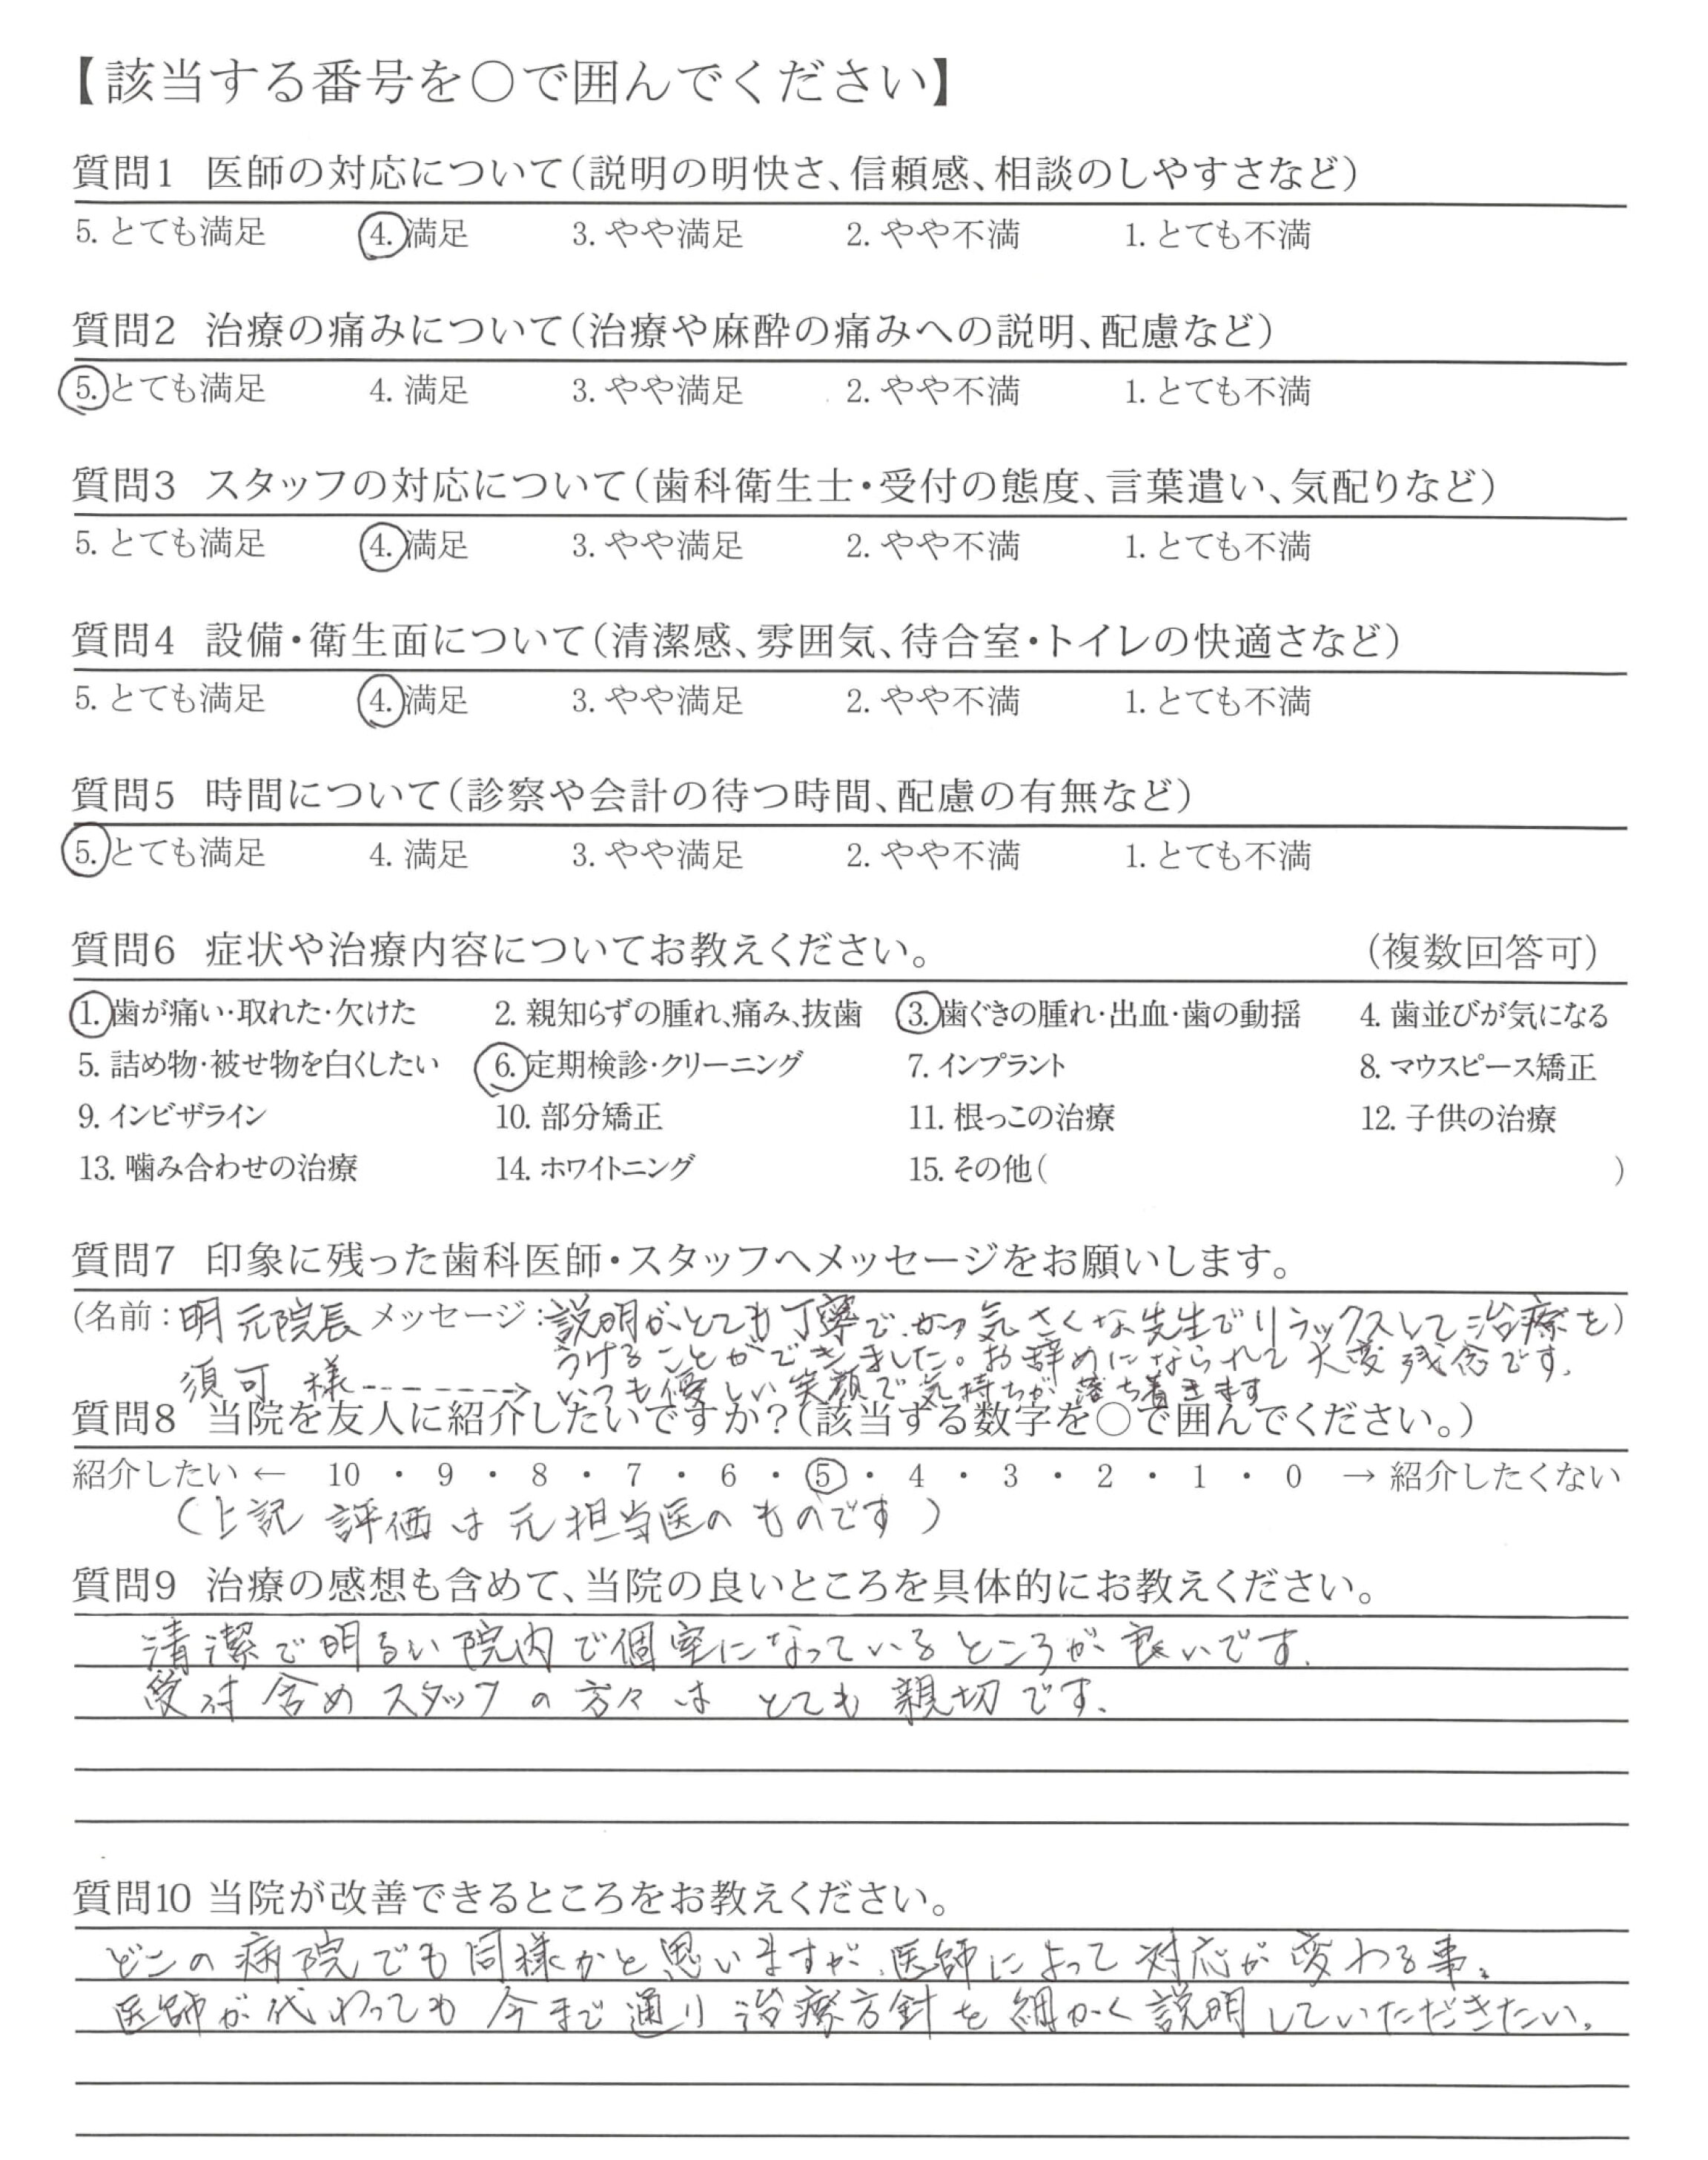 【該当する番号を〇で囲んでください】
質問1 医師の対応について(説明の明快さ、信頼感、相談のしやすさなど)
5. とても満足 4. 満足 3. やや満足 2. やや不満 1. とても不満
質問2 治療の痛みについて(治療や麻酔の痛みへの説明、配慮など)
5. とても満足 4. 満足 3. やや満足 2. やや不満 1. とても不満
質問3 スタッフの対応について(歯科衛生士・受付の態度、言葉遣い、気配りなど)
5. とても満足 4. 満足 3. やや満足 2. やや不満 1. とても不満
質問4 設備・衛生面について(清潔感、雰囲気、待合室・トイレの快適さなど)
5. とても満足 4. 満足 3. やや満足 2. やや不満 1. とても不満
質問5 時間について(診察や会計の待つ時間、配慮の有無など)
5. とても満足 4. 満足 3. やや満足 2. やや不満 1. とても不満
質問6 症状や治療内容についてお教えください。 (複数回答可)
1. 歯が痛い・取れた・欠けた 2. 親知らずの腫れ、痛み、抜歯 3. 歯ぐきの腫れ・出血・歯の動揺 4. 歯並びが気になる
5. 詰め物・被せ物を白くしたい 6. 定期検診・クリーニング 7. インプラント 8. マウスピース矯正
9. インビザライン 10. 部分矯正 11. 根っこの治療 12. 子供の治療
13. 噛み合わせの治療 14. ホワイトニング 15. その他( )
質問7 印象に残った歯科医師・スタッフへメッセージをお願いします。
(名前:明元院長 メッセージ:説明がとても丁寧で、かつ気さくな先生でリラックスして治療を)
うけることができました。お辞めになられて大変残念です。
須可様-------→いつも優しい笑顔で気持ちが落ち着きます
質問8 当院を友人に紹介したいですか?(該当する数字を〇で囲んでください。)
紹介したい ← 10 ・ 9 ・ 8 ・ 7 ・ 6 ・ 5 ・ 4 ・ 3 ・ 2 ・ 1 ・ 0 → 紹介したくない
(上記評価は元担当医のものです)
質問9 治療の感想も含めて、当院の良いところを具体的にお教えください。
清潔で明るい院内で個室になっているところが良いです。
受付含めスタッフの方々はとても親切です。
質問10 当院が改善できるところをお教えください。
どこの病院でも同様かと思いますが、医師によって対応が変わる事。
医師が代わっても今まで通り治療方針を細かく説明していただきたい。